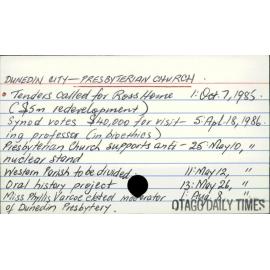 DUNEDIN CITY — PRESBYTERIAN CHURCH.
Tenders called for Ross Home 1: Oct. 7, 1985.
($5m redevelopment)
Synod votes $40,000 for visit- 5: Apl. 18, 1986.
ing professor (in bioethics)
Presbyterian Church supports anti- 25: May 10, "
nuclear stand
Western Parish to be divided. 11: May 12, "
Oral history project 13: May 26, "
Miss Phyllis Varcoe elected moderator 1: Aug 8, "
of Dunedin Presbytery.
OTAGO DAILY TIMES